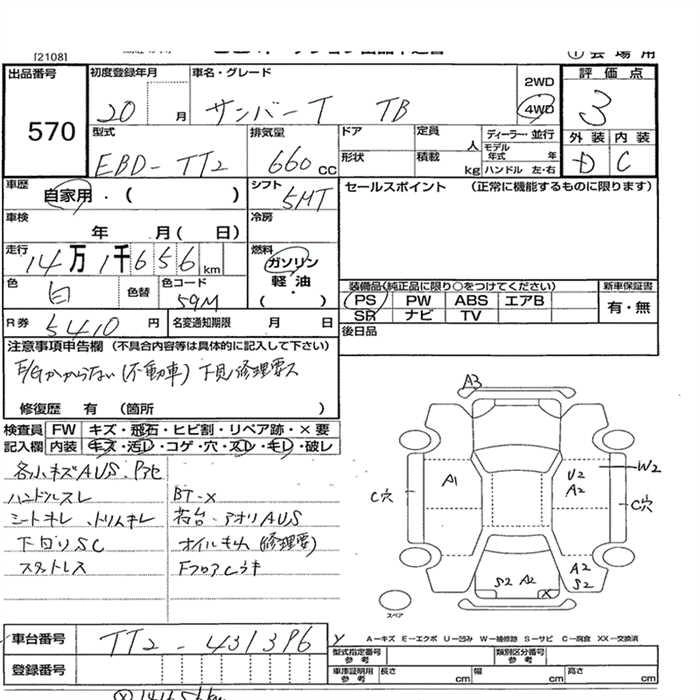 [2108]
① 会場用
出品番号 570
初度登録年月 20 月
車名・グレード サンバー T TB
2WD
4WD
評価点 3
外装 内装
D C
型式 EBD-TT2
排気量 660 cc
ドア
形状
定員 人
積載 kg
ディーラー・並行
モデル年式 年
ハンドル 左・右
車歴 自家用・( )
シフト 5MT
セールスポイント (正常に機能するものに限ります)
車検 年 月( 日)
冷房
走行 14万1千656 km
燃料 ガソリン
軽・油
( )
色 白 色替
色コード 59M
装備品(純正品に限り○をつけてください)
新車保証書
PS PW ABS エアB
SR ナビ TV
有・無
R券 5410 円
名変通知期限 月 日
後日品
注意事項申告欄 (不具合内容等は具体的に記入して下さい)
E/Gかからない(不動車) 下見修理要ス
修復歴 有 (箇所 )
検査員 FW キズ・飛石・ヒビ割・リペア跡・×要
記入欄 内装 キズ・汚レ・コゲ・穴・スレ・キレ・破レ
各小キズAUS.
ハンドルスレ BT-X
シートキレ、トリムキレ 荷台・アオリAUS
下回りSC オイルもれ(修理要)
スタットレス FフロアCウキ
A3
A1
U2
A2
W2
C穴
C穴
A2
S2
S2 A2 X
スペア
車台番号 TT2-431396
A-キズ E-エクボ U-凹み W-補修跡 S-サビ C-腐食 XX-交換済
登録番号
型式指定番号 参考
類別区分番号 参考
車庫証明用 参考 長さ cm 幅 cm 高さ cm